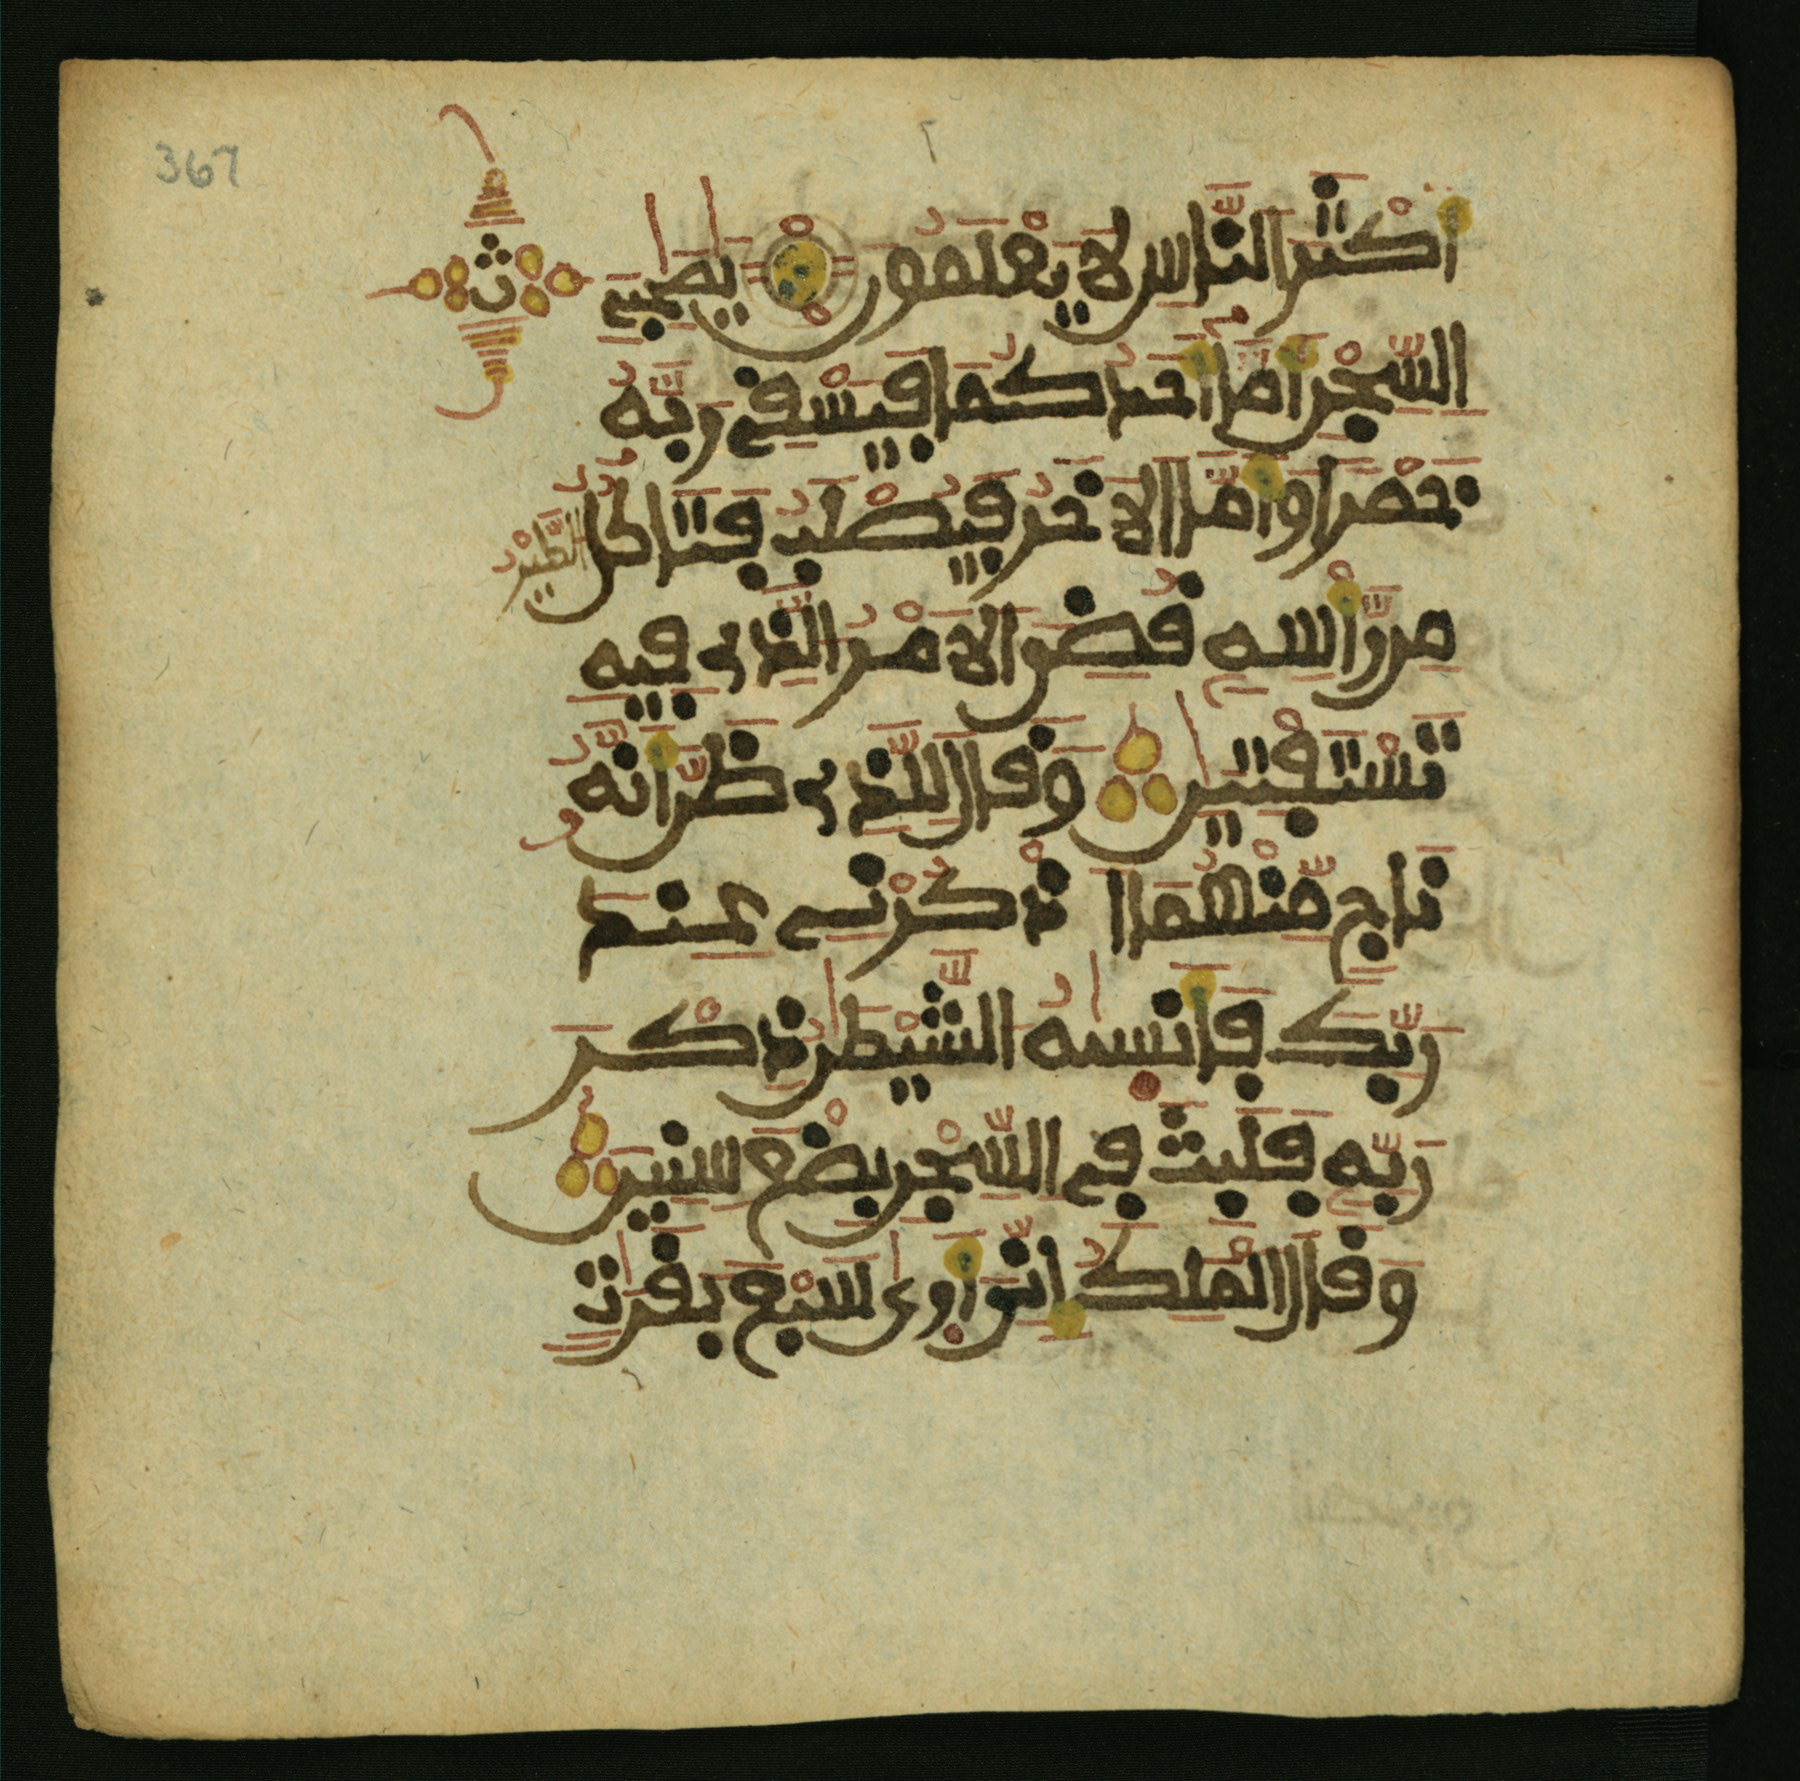 367
ث
أَكْثَرَ النَّاسِ لَا يَعْلَمُونَ يَٰصَٰحِبَيِ
السِّجْنِ أَمَّا أَحَدُكُمَا فَيَسْقِي رَبَّهُ
خَمْرًا وَأَمَّا الَاخَرُ فَيُصْلَبُ فَتَاكُلُ الطَّيْرُ
مِن رَّأْسِهِ قُضِيَ الَامْرُ الَّذِي فِيهِ
تَسْتَفْتِيَٰنِ وَقَالَ لِلَّذِي ظَنَّ أَنَّهُ
نَاجٍ مِّنْهُمَا اذْكُرْنِي عِندَ
رَبِّكَ فَأَنسَىٰهُ الشَّيْطَٰنُ ذِكْرَ
رَبِّهِ فَلَبِثَ فِي السِّجْنِ بِضْعَ سِنِينَ
وَقَالَ الْمَلِكُ إِنِّيَ أَرَىٰ سَبْعَ بَقَرَٰتٍ